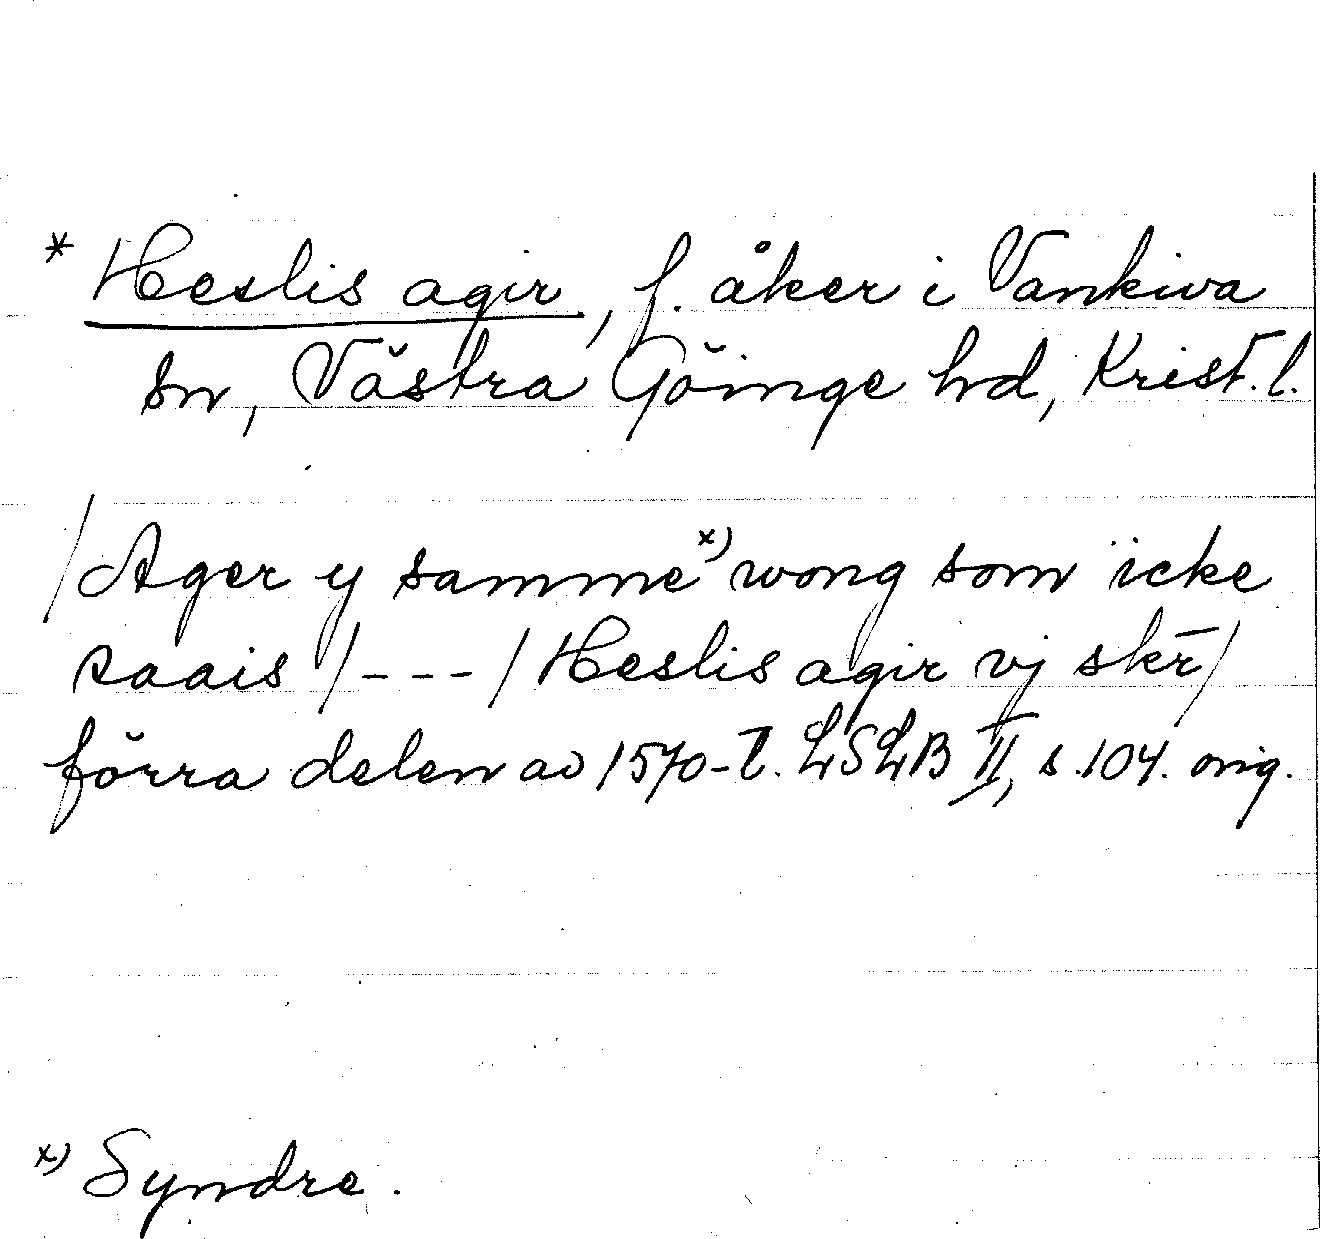 * Heslis agir, f. åker i Vankiva
sn, Västra Göinge hd, Krist. l.
/Ager y samme x) wong som icke
saais /---/ Heslis agir vj skr̄/
förra delen av 1570-t. LSLB II, s. 104. orig.
x) Syndre.